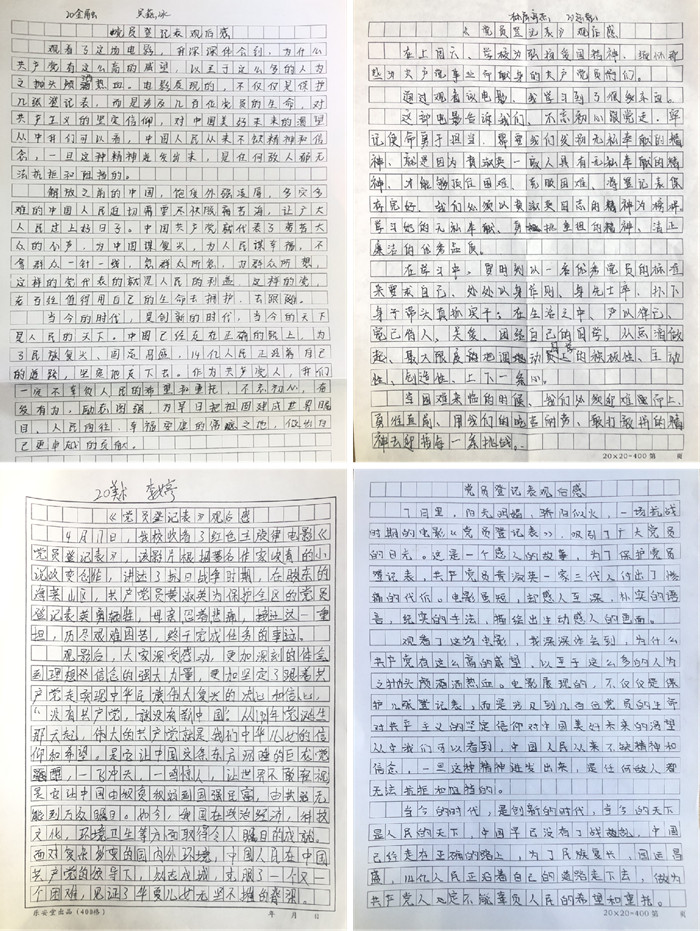 20金融
党员登记表观后感
观看了这场电影,我深深体会到,为什么
共产党有这么高的威望,以至于这么多的人为
之抛头颅洒热血。电影展现的,不仅仅是保护
几张登记表,而是涉及几百位党员的生命,对
共产主义的坚定信仰,对中国美好未来的渴望
从中我们可以看,中国人民从来不缺精神和信
念,一旦这种精神迸发出来,是任何敌人都无
法抗拒和阻挡的。
解放之前的中国,饱受外强凌辱,多灾多
难的中国人民迫切需要不快脱离苦海,让广大
人民过上好日子。中国共产党就代表了劳苦大
众的心声,为中国谋复兴,为人民谋幸福,不
拿群众一针一线,急群众所急,为群众所想,
这样的党代表的就是人民的利益,这样的党,
老百姓值得用自己的生命去拥护,去跟随。
当今的时代,是创新的时代,当今的天下
是人民的天下。中国已经走在正确的路上,为
了民族复兴,国运昌盛,14亿人民正沿着自己
的道路,坚定地走下去。作为共产党人,我们
一定不辜负人民的希望和重托,不忘初心,奋
发有为,励志图强,为早日把祖国建成世界瞩
目、人民向往、幸福安康的伟大之地,做出自
己更卓越的贡献。
《党员登记表》观后感
在上周六、学校为弘扬爱国精神、组织
共产党事业而献身的共产党员们。
通过观看该电影、我学习到了很多东西。
这部电影告诉我们、不忘初心跟党走、牢
记使命勇于担当、需要我们发扬无私奉献的精
神、就是因为黄淑英一家人具有无私奉献的精
神、才能够抵住困难、克服困难、将登记表保
存完好、我们必须以黄淑英同志的精神为榜样、
学习她的无私奉献、勇担重担的精神、清正
廉洁的优秀品质。
在学习中、要时刻以一名优秀党员的标准
来要求自己、处处以身作则、身先士卒、扑下
身子带头真抓实干;在生活之中、严以律己、
宽已待人、关爱、团结自己的同学、从点滴做
起、最大限度地调动员工的积极性、主动
性、创造性、上下一条心。
当困难来临的时候、我们必须迎难而上、
勇往直前、用我们的吃苦耐劳、敢打敢拼的精
神去迎接每一条挑战。
20×20=400 第 页
20美术 李婷
《党员登记表》观后感
4月17日,我校收看了红色主旋律电影《
党员登记表》,该影片根据著名作家峻青的小
说改变创作,讲述了抗日战争时期,在胶东的
海莱山区,共产党员黄淑英为保护全区的党员
登记表英勇牺牲,母亲忍着悲痛,接过这一重
担,历尽艰难困苦,终于完成任务的事迹。
观影后,大家深受感动,更加深刻的体会
到理想和信念的强大力量,更加坚定了跟着共
产党走实现中华民族伟大复兴的决心和信心。
“没有共产党,就没有新中国。从1921年党诞生
那天起,伟大的共产党就是我们中华儿女的信
仰和希望。是它让中国这条东方沉睡的巨龙觉
醒,一飞冲天,一鸣惊人,让世界不敢藐视
是它让中国由极贫极弱到国强民富,由
到万众瞩目。如今,我国在政治经济,科技
文化,环境卫生等方面取得令人瞩目的成就。
面对复杂多变的国内外环境,中国人民在中国
共产党的领导下,众志成城,克服了一个又一
个困难,见证了华夏儿女无坚不摧的奇强。
乐安堂出品(400格) 年 月 日
党员登记表观后感
17日里,白天鸿雁,骄阳似火,一场抗战
时期的电影《党员登记表》,吸引了广大党员
的目光。这是一个感人的故事,为了保护党员
登记表,共产党员黄淑英一家三代人付出了惨
痛的代价。电影虽短,却感人至深,朴实的语
言,纪实的手法,描绘出生动感人的画面。
观看了这场电影,我深深体会到,为什么
共产党有这么高的威望,以至于这么多的人为
之抛头颅洒热血。电影展现的,不仅仅是保
护几张登记表,而是涉及到几百位党员的生命
对共产主义的坚定信仰对中国美好未来的渴望
从中我们可以看到,中国人民从来不缺精神和
信念,一旦这种精神迸发出来,是任何敌人都
无法抗拒和阻挡的。
当今的时代,是创新的时代,当今的天下
是人民的天下,中国早已没有了战乱,中国
已经走在正确的路上,为了民族复兴,国运昌
盛,14亿人民正沿着自己的道路走下去,做为
共产党人一定不能辜负人民的希望和重托。
20×20=400 第 页